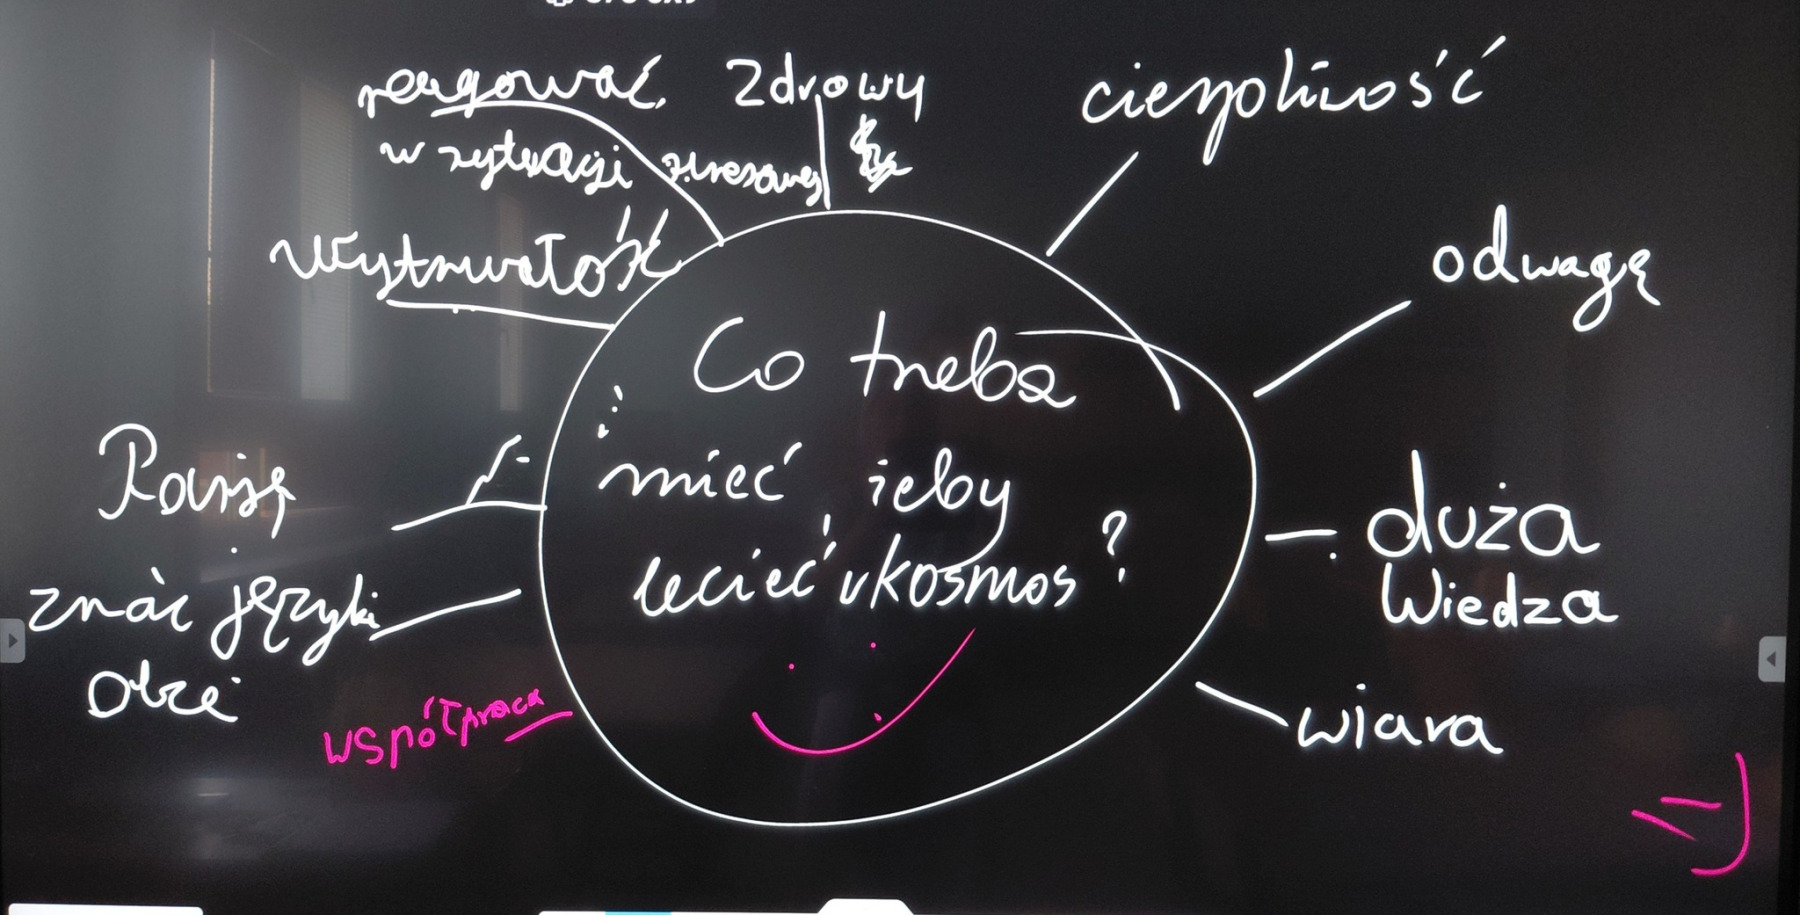 reagować
w sytuacji stresowej
Zdrowy
cierpliwość
odwagę
duża
Wiedza
wiara
Wytrwałość
Pasję
znać języki
obce
współpraca
Co trzeba
mieć żeby
lecieć w kosmos?